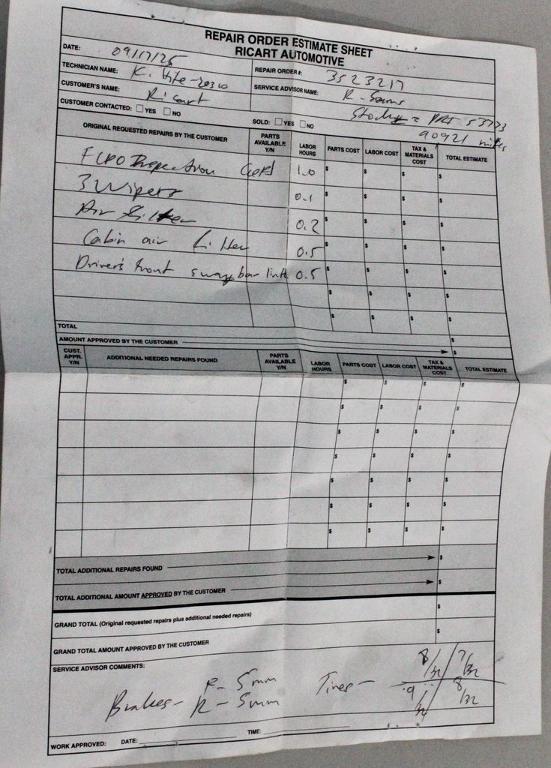 REPAIR ORDER ESTIMATE SHEET
RICART AUTOMOTIVE
DATE: 09/17/25
REPAIR ORDER #: 3523217
TECHNICIAN NAME: K.
SERVICE ADVISOR NAME: R-
CUSTOMER'S NAME: Ricart
CUSTOMER CONTACTED: YES NO
SOLD: YES NO
90921 miles
ORIGINAL REQUESTED REPAIRS BY THE CUSTOMER PARTS AVAILABLE Y/N LABOR HOURS PARTS COST LABOR COST TAX & MATERIALS COST TOTAL ESTIMATE
Inspection 1.0 $ $ $ $
3 Wipers 0.1 $ $ $ $
Air Filter 0.2 $ $ $ $
Cabin air filter 0.5 $ $ $ $
Driver's front sway bar link 0.5 $ $ $ $
$ $ $ $
$ $ $ $
TOTAL $
AMOUNT APPROVED BY THE CUSTOMER $
CUST. APPR. Y/N ADDITIONAL NEEDED REPAIRS FOUND PARTS AVAILABLE Y/N LABOR HOURS PARTS COST LABOR COST TAX & MATERIALS COST TOTAL ESTIMATE
$ $ $ $
$ $ $ $
$ $ $ $
$ $ $ $
$ $ $ $
$ $ $ $
$ $ $ $
TOTAL ADDITIONAL REPAIRS FOUND $
TOTAL ADDITIONAL AMOUNT APPROVED BY THE CUSTOMER $
GRAND TOTAL (Original requested repairs plus additional needed repairs) $
GRAND TOTAL AMOUNT APPROVED BY THE CUSTOMER $
SERVICE ADVISOR COMMENTS:
F- 5mm Tires - 8/32 7/32
Brakes - R- 5mm 9/32 8/32
WORK APPROVED: DATE: TIME: